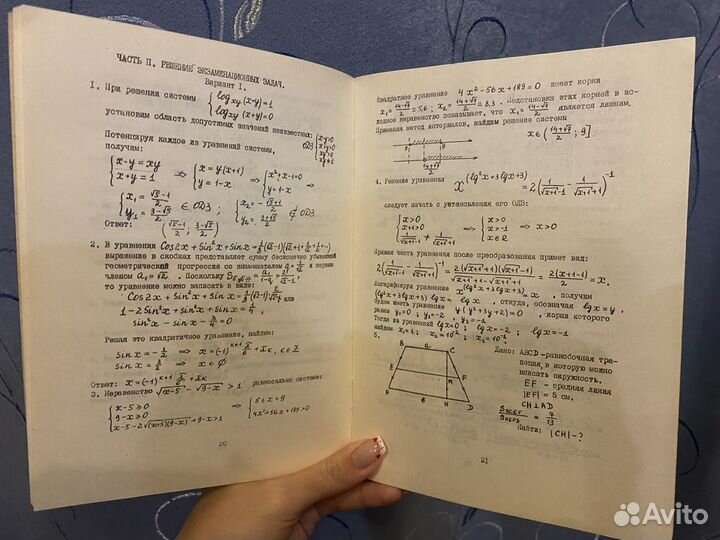 ЧАСТЬ П. РЕШЕНИЕ ЭКЗАМЕНАЦИОННЫХ ЗАДАЧ.
Вариант I.
I. При решении системы { log_xy (x-y)=1
log_xy (x+y)=0
установим область допустимых значений неизвестных:
Потенцируя каждое из уравнений системы, ОДЗ
получим:
{ x-y=xy ⇒ { x=y(y+1) ⇒ { x²+x-1=0 ⇒
x+y=1 y=1-x y=1-x
{ x₁=(√5-1)/2 ∈ ОДЗ; { x₂= ∉ ОДЗ
y₁=(3-√5)/2 y₂=
Ответ: ((√5-1)/2; (3-√5)/2)
2. В уравнении Cos2x+Sin²x+Sinx=
выражение в скобках представляет сумму бесконечно убывающей
геометрической прогрессии со знаменателем
членом a₁=√2. Поскольку
то уравнение можно записать в виде:
Cos2x+Sin²x+Sinx= или
1-2Sin²x+Sin²x+Sinx=
Sin²x-Sinx-3/4=0
Решая это квадратичное уравнение, найдем:
Sinx=-1/2 ⇒ x=(-1)^(k+1) π/6+πk, k∈Z
Sinx=3/2 ⇒ x∈∅
Ответ: x=(-1)^(k+1) π/6+πk
3. Неравенство √(x-5)-√(9-x)>1 равносильно системе:
{ x-5≥0
9-x≥0 ⇒ { 5≤x≤9
x-5-2√((x-5)(9-x))+9-x>1 4x²-56x+189>0
20
Квадратное уравнение 4x²-56x+189=0 имеет корни
x₁=(14-√7)/2=5,6; x₂=(14+√7)/2=8,3. Подстановка этих корней в ис-
ходное неравенство показывает, что x₁=(14-√7)/2 является лишним.
Применяя метод интервалов, найдем решение системы
x∈((14+√7)/2; 9].
5 9
(14+√7)/2
4. Решение уравнения x^(lg²x+3lgx+3)=2(1/(√(x+1)-1)-1/(√(x+1)+1))^-1
следует начать с установления его ОДЗ:
{ x>0 ⇒ { x>0 ⇒ x>0
x+1>0 x>-1
x∈R
Правая часть уравнения после преобразования примет вид:
2(1/(√(x+1)-1)-1/(√(x+1)+1))^-1=2(√(x+1)+1)(√(x+1)-1)/2=2(x+1-1)/2=x.
Логарифмируя уравнение x^(lg²x+3lgx+3)=x, получим
(lg²x+3lgx+3)lgx=lgx, откуда, обозначая lgx=y,
будем иметь уравнение y(y²+3y+2)=0, корни которого
y₁=0; y₂=-2; y₃=-1
Тогда из уравнений lgx=0; lgx=-2; lgx=-1
найдем x₁=1; x₂=10⁻²; x₃=10⁻¹
5.
a
B C
E F
M
A в H D
Дано: ABCD -равнобочная тра-
пеция, в которую можно
вписать окружность.
EF - средняя линия
|EF|= 5 см.
CH⊥AD
S_BCEF/S_AEFD=7/13
Найти: |CH|-?
21
Avito